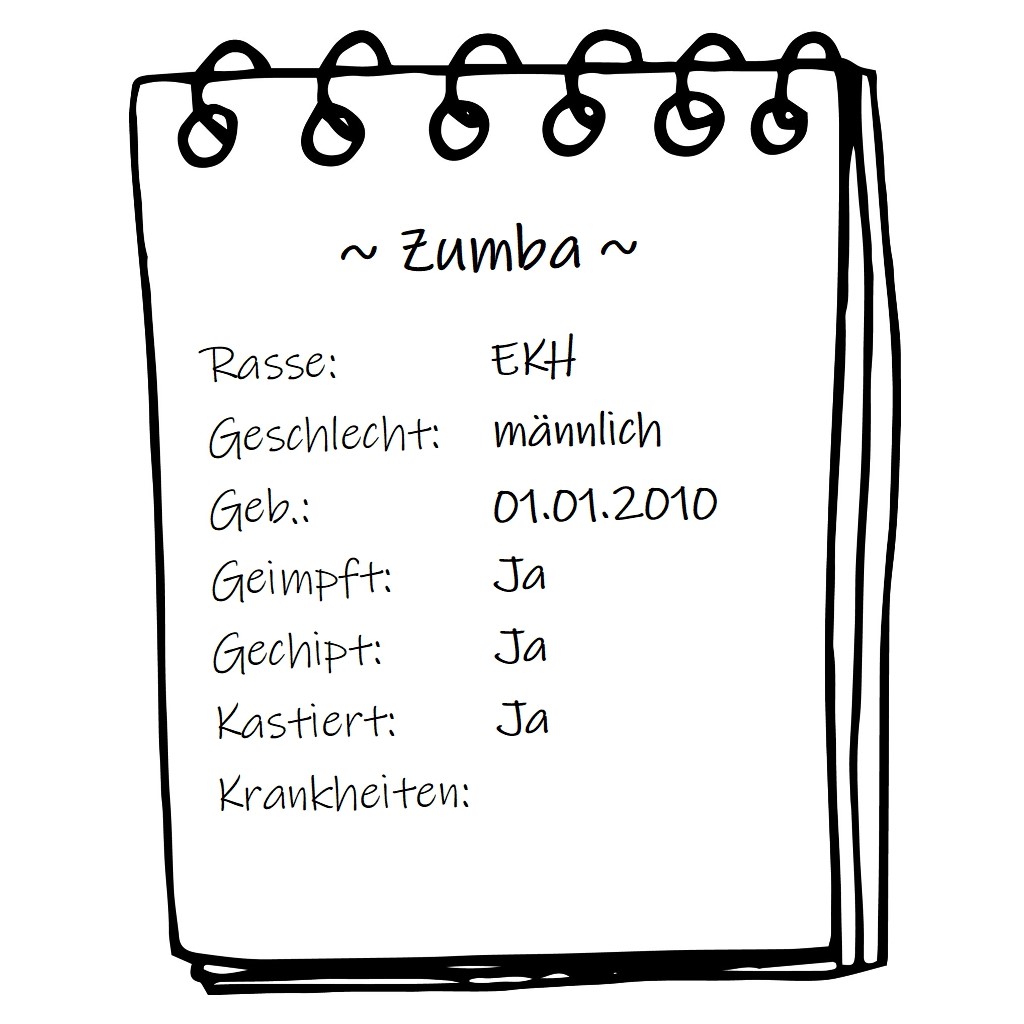 ~ Zumba ~
Rasse: EKH
Geschlecht: männlich
Geb.: 01.01.2010
Geimpft: Ja
Gechipt: Ja
Kastiert: Ja
Krankheiten: